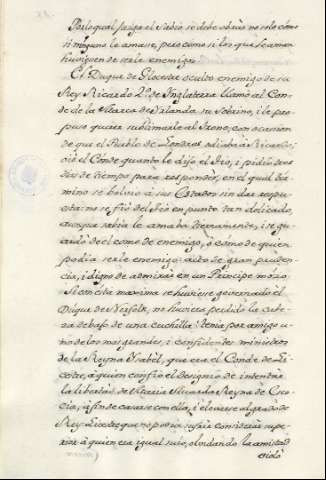 Por lo qual juzga el Sabio se debe obrar no solo como
si ninguno le amase, pero como si los que le aman
huviesen de serle enemigos.
El Duque de Glocestre oculto enemigo de su
Rey Ricardo 2º de Inglaterra llamó al Con
de de la Marca de Yrlanda su Sobrino, i le pro
puso querer sublimarle al Trono, con ocasion
de que el Pueblo de Londres odiaba à Ricardo.
oió el Conde quanto le dijo el tio, i pidiò tres
dias de tiempo para responder, en el qual ter
mino se bolvió à sus Estados sin dar respu
esta: no se fió del tio en punto tan delicado,
aunque sabia le amaba tiernamente, i se gu
ardó de el como de enemigo, ó como de quien
podia serle enemigo: acto de gran pruden
cia, i digno de admirar en un Principe mozo.
Si con esta maxima se huviese governado el
Duque de Norfolk, no huviera perdido la cabe
za debajo de una cuchilla: tenia por amigo u
no de los mas grandes, i confidentes ministros
de la Reyna Ysabel, que era el Conde de Li
cestre, à quien confió el designio de intentar
la libertad de Maria Stuarda Reyna de Esco
cia, à fin de casarse con ella, i elevarse al grado de
Rey. Licestre que no podia sufrir con
superior à quien era igual suio, olvidando la amistad